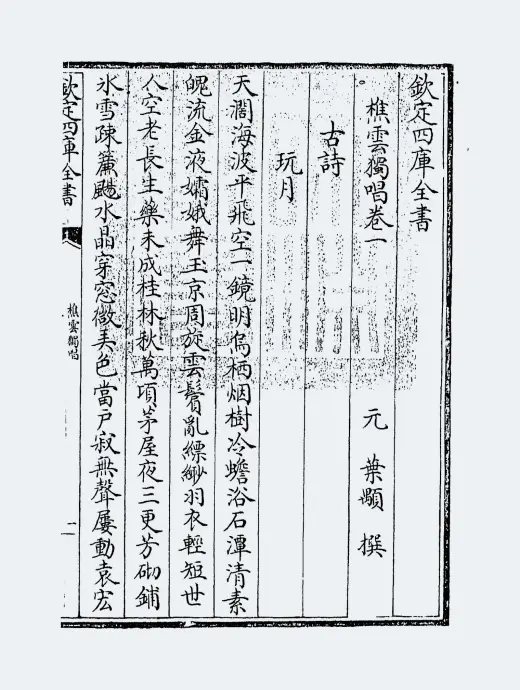 欽定四庫全書
樵雲獨唱卷一
元 葉顒 撰
古詩
玩月
天濶海波平飛空一鏡明烏栖烟樹冷蟾浴石潭清素
魄流金液孀娥舞玉京周旋雲鬢亂縹緲羽衣輕短世
人空老長生藥未成桂林秋萬頃茅屋夜三更芳砌鋪
氷雪疎簾颺水晶穿窓微美色當戶寂無聲屢動袁宏
欽定四庫全書
樵雲獨唱
一